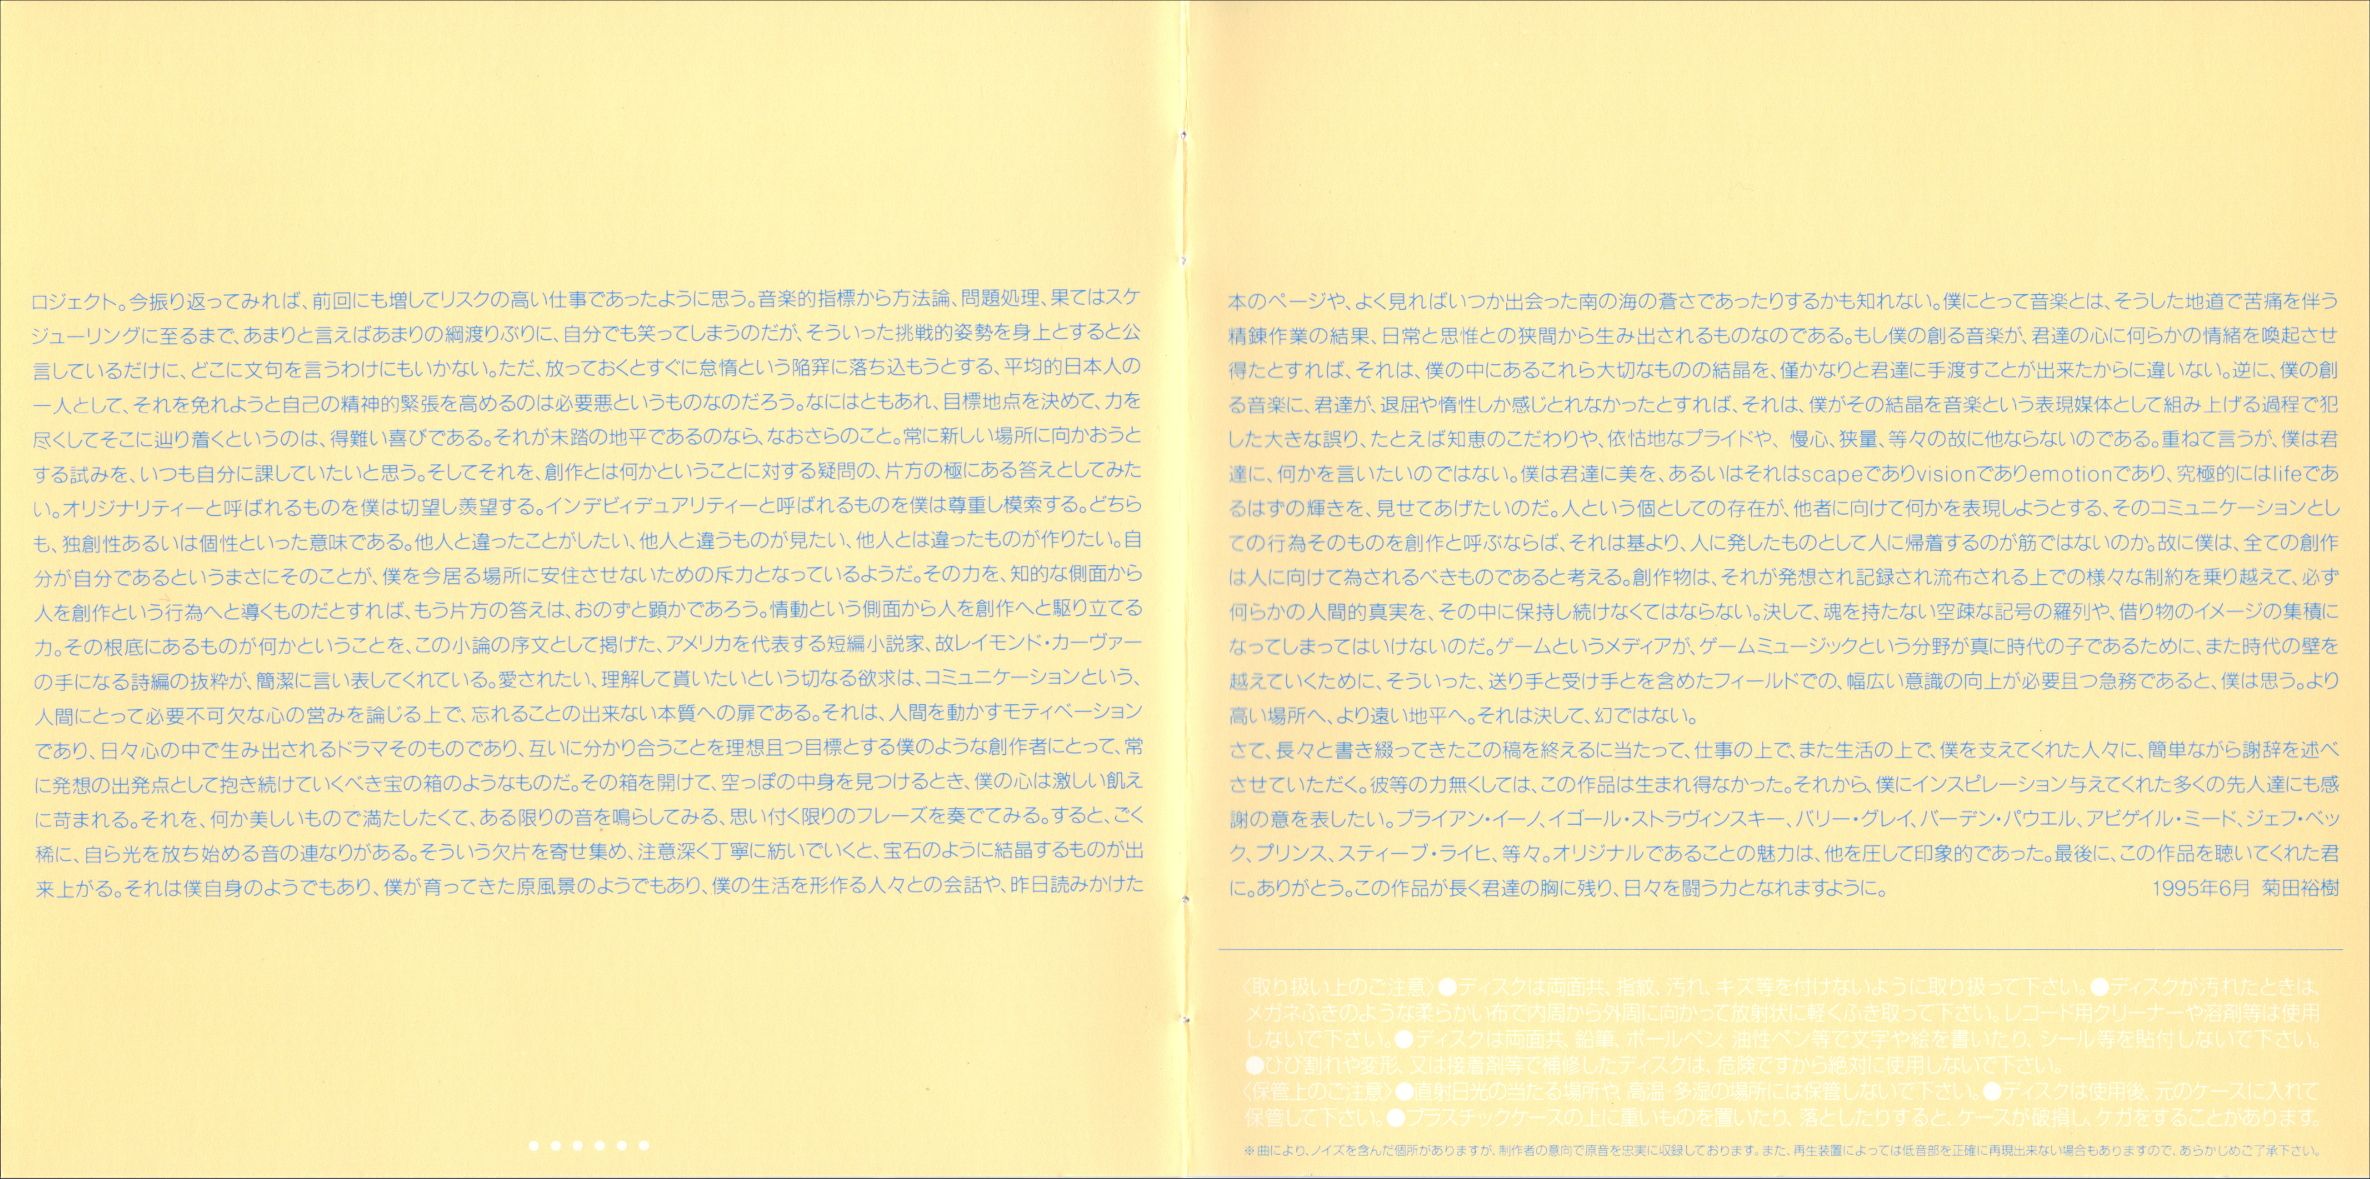 ロジェクト。今振り返ってみれば、前回にも増してリスクの高い仕事であったように思う。音楽的指標から方法論、問題処理、果てはスケ
ジューリングに至るまで、あまりと言えばあまりの綱渡りぶりに、自分でも笑ってしまうのだが、そういった挑戦的姿勢を身上とすると公
言しているだけに、どこに文句を言うわけにもいかない。ただ、放っておくとすぐに怠惰という陥穽に落ち込もうとする、平均的日本人の
一人として、それを免れようと自己の精神的緊張を高めるのは必要悪というものなのだろう。なにはともあれ、目標地点を決めて、力を
尽くしてそこに辿り着くというのは、得難い喜びである。それが未踏の地平であるのなら、なおさらのこと。常に新しい場所に向かおうと
する試みを、いつも自分に課していたいと思う。そしてそれを、創作とは何かということに対する疑問の、片方の極にある答えとしてみた
い。オリジナリティーと呼ばれるものを僕は切望し羨望する。インデビィデュアリティーと呼ばれるものを僕は尊重し模索する。どちら
も、独創性あるいは個性といった意味である。他人と違ったことがしたい、他人と違うものが見たい、他人とは違ったものが作りたい。自
分が自分であるというまさにそのことが、僕を今居る場所に安住させないための斥力となっているようだ。その力を、知的な側面から
人を創作という行為へと導くものだとすれば、もう片方の答えは、おのずと顕かであろう。情動という側面から人を創作へと駆り立てる
力。その根底にあるものが何かということを、この小論の序文として掲げた、アメリカを代表する短編小説家、故レイモンド・カーヴァー
の手になる詩編の抜粋が、簡潔に言い表してくれている。愛されたい、理解して貰いたいという切なる欲求は、コミュニケーションという、
人間にとって必要不可欠な心の営みを論じる上で、忘れることの出来ない本質への扉である。それは、人間を動かすモティベーション
であり、日々心の中で生み出されるドラマそのものであり、互いに分かり合うことを理想且つ目標とする僕のような創作者にとって、常
に発想の出発点として抱き続けていくべき宝の箱のようなものだ。その箱を開けて、空っぽの中身を見つけるとき、僕の心は激しい飢え
に苛まれる。それを、何か美しいもので満たしたくて、ある限りの音を鳴らしてみる、思い付く限りのフレーズを奏でてみる。すると、ごく
稀に、自ら光を放ち始める音の連なりがある。そういう欠片を寄せ集め、注意深く丁寧に紡いでいくと、宝石のように結晶するものが出
来上がる。それは僕自身のようでもあり、僕が育ってきた原風景のようでもあり、僕の生活を形作る人々との会話や、昨日読みかけた
本のページや、よく見ればいつか出会った南の海の蒼さであったりするかも知れない。僕にとって音楽とは、そうした地道で苦痛を伴う
精錬作業の結果、日常と思惟との狭間から生み出されるものなのである。もし僕の創る音楽が、君達の心に何らかの情緒を喚起させ
得たとすれば、それは、僕の中にあるこれら大切なものの結晶を、僅かなりと君達に手渡すことが出来たからに違いない。逆に、僕の創
る音楽に、君達が、退屈や惰性しか感じとれなかったとすれば、それは、僕がその結晶を音楽という表現媒体として組み上げる過程で犯
した大きな誤り、たとえば知恵のこだわりや、依怙地なプライドや、慢心、狭量、等々の故に他ならないのである。重ねて言うが、僕は君
達に、何かを言いたいのではない。僕は君達に美を、あるいはそれはscapeでありvisionでありemotionであり、究極的にはlifeであ
るはずの輝きを、見せてあげたいのだ。人という個としての存在が、他者に向けて何かを表現しようとする、そのコミュニケーションとし
ての行為そのものを創作と呼ぶならば、それは基より、人に発したものとして人に帰着するのが筋ではないのか。故に僕は、全ての創作
は人に向けて為されるべきものであると考える。創作物は、それが発想され記録され流布される上での様々な制約を乗り越えて、必ず
何らかの人間的真実を、その中に保持し続けなくてはならない。決して、魂を持たない空疎な記号の羅列や、借り物のイメージの集積に
なってしまってはいけないのだ。ゲームというメディアが、ゲームミュージックという分野が真に時代の子であるために、また時代の壁を
越えていくために、そういった、送り手と受け手とを含めたフィールドでの、幅広い意識の向上が必要且つ急務であると、僕は思う。より
高い場所へ、より遠い地平へ。それは決して、幻ではない。
さて、長々と書き綴ってきたこの稿を終えるに当たって、仕事の上で、また生活の上で、僕を支えてくれた人々に、簡単ながら謝辞を述べ
させていただく。彼等の力無くしては、この作品は生まれ得なかった。それから、僕にインスピレーション与えてくれた多くの先人達にも感
謝の意を表したい。ブライアン・イーノ、イゴール・ストラヴィンスキー、バリー・グレイ、バーデン・パウエル、アビゲイル・ミード、ジェフ・ベッ
ク、プリンス、スティーブ・ライヒ、等々。オリジナルであることの魅力は、他を圧して印象的であった。最後に、この作品を聴いてくれた君
に。ありがとう。この作品が長く君達の胸に残り、日々を闘う力となれますように。 1995年6月 菊田裕樹
〈取り扱い上のご注意〉●ディスクは両面共、指紋、汚れ、キズ等を付けないように取り扱って下さい。●ディスクが汚れたときは、
メガネふきのような柔らかい布で内周から外周に向かって放射状に軽くふき取って下さい。レコード用クリーナーや溶剤等は使用
しないで下さい。●ディスクは両面共、鉛筆、ボールペン、油性ペン等で文字や絵を書いたり、シール等を貼付しないで下さい。
●ひび割れや変形、又は接着剤等で補修したディスクは、危険ですから絶対に使用しないで下さい。
〈保管上のご注意〉●直射日光の当たる場所や、高温・多湿の場所には保管しないで下さい。●ディスクは使用後、元のケースに入れて
保管して下さい。●プラスチックケースの上に重いものを置いたり、落としたりすると、ケースが破損し、ケガをすることがあります。
※曲により、ノイズを含んだ個所がありますが、制作者の意向で原音を忠実に収録しております。また、再生装置によっては低音部を正確に再現出来ない場合もありますので、あらかじめご了承下さい。